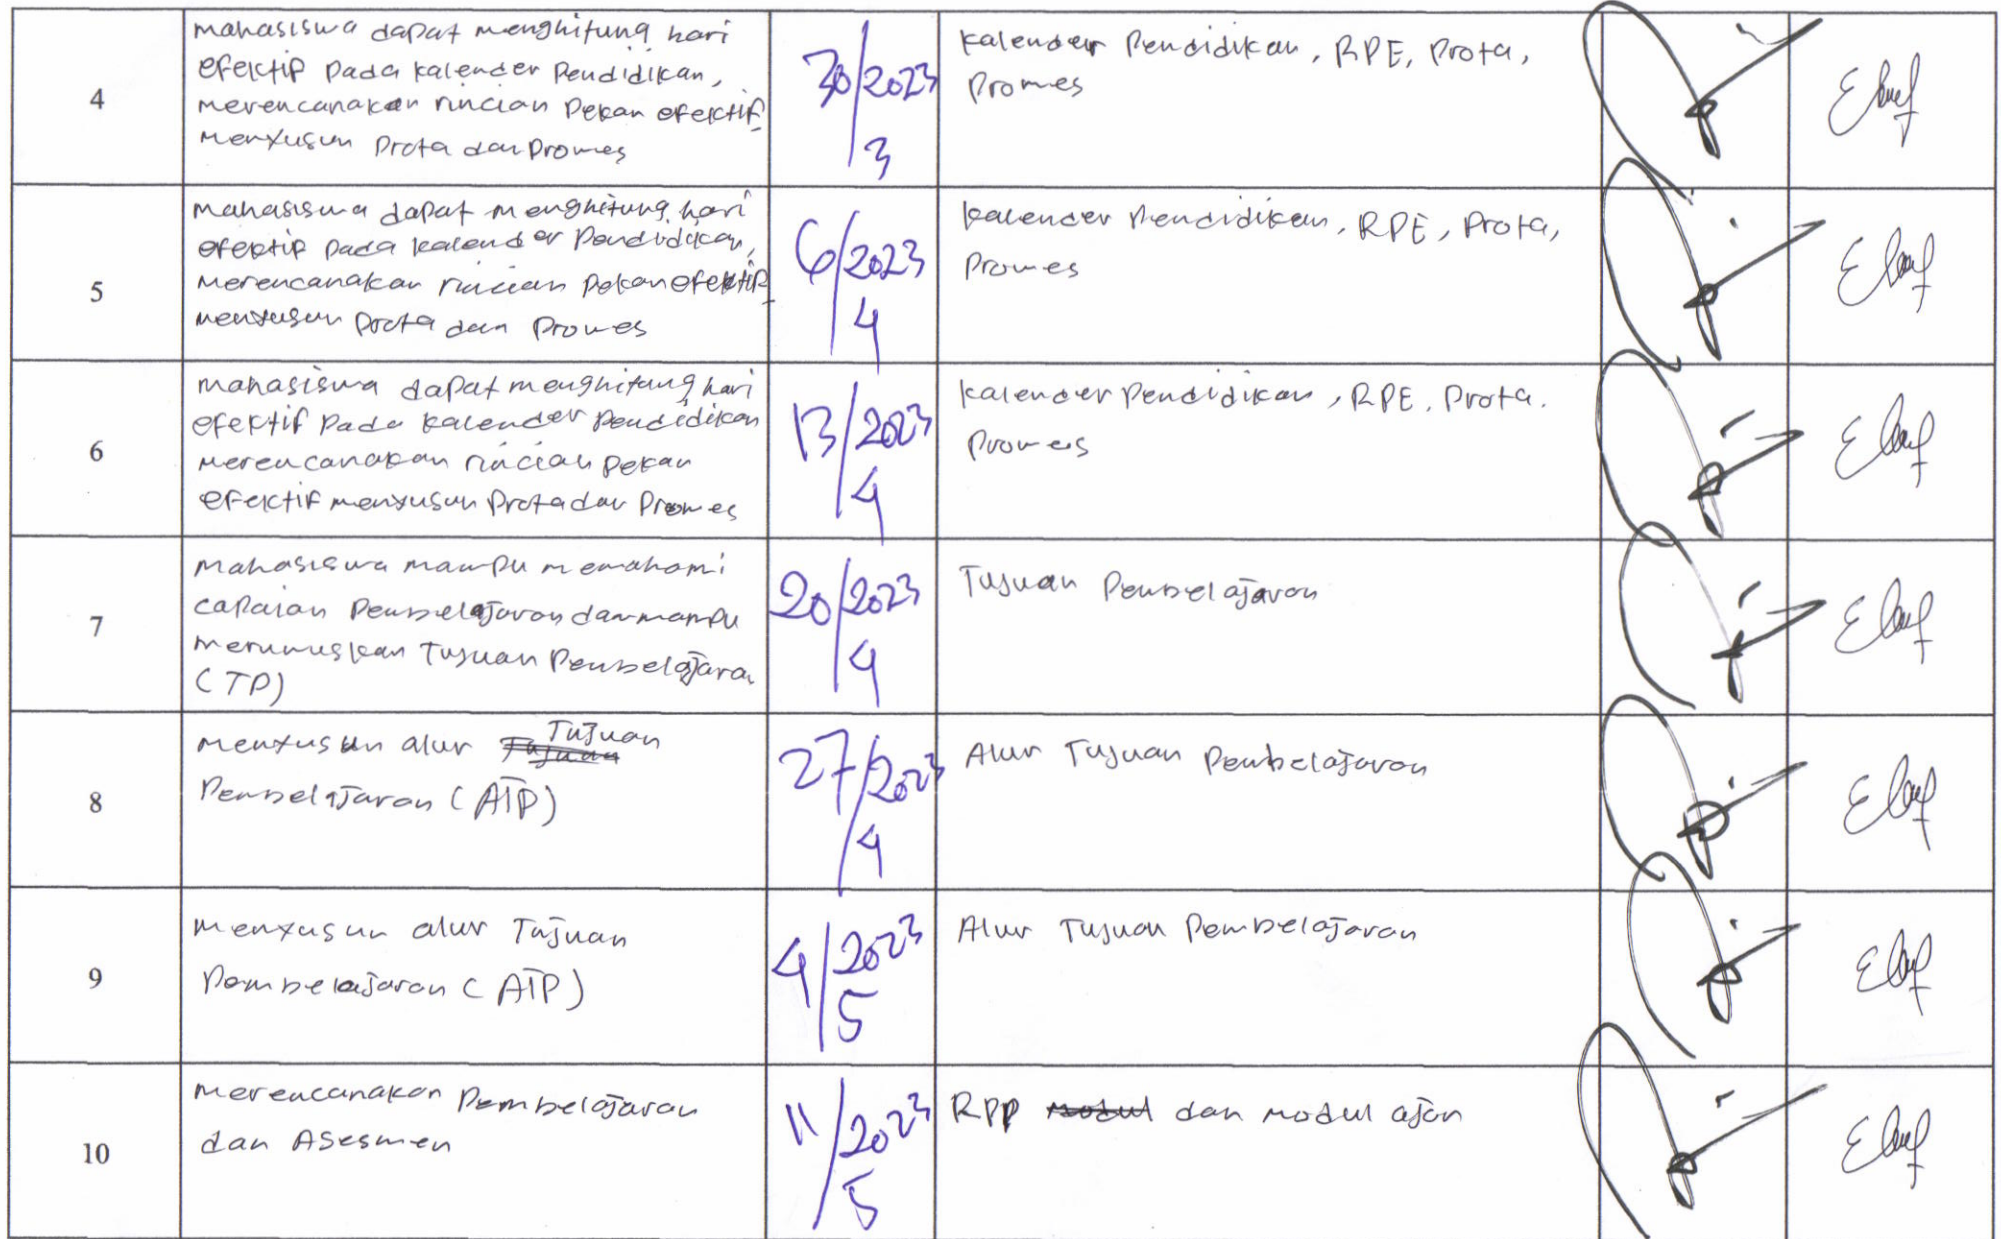 4
mahasiswa dapat menghitung hari
efektif pada kalender pendidikan,
merencanakan rincian pekan efektif
menyusun prota dan promes
30/2023
3
kalender pendidikan, RPE, prota,
promes
5
mahasiswa dapat menghitung hari
efektif pada kalender pendidikan,
merencanakan rincian pekan efektif
menyusun prota dan promes
6/2023
4
kalender pendidikan, RPE, prota,
promes
6
mahasiswa dapat menghitung hari
efektif pada kalender pendidikan
merencanakan rincian pekan
efektif menyusun prota dan promes
13/2023
4
kalender pendidikan, RPE, prota.
promes
7
mahasiswa mampu memahami
capaian pembelajaran dan mampu
merumuskan Tujuan Pembelajaran
(TP)
20/2023
4
Tujuan pembelajaran
8
menyusun alur Tujuan
Pembelajaran (ATP)
27/2023
4
Alur Tujuan pembelajaran
9
menyusun alur Tujuan
Pembelajaran (ATP)
4/2023
5
Alur Tujuan pembelajaran
10
merencanakan pembelajaran
dan Asesmen
11/2023
5
RPP modul dan modul ajar